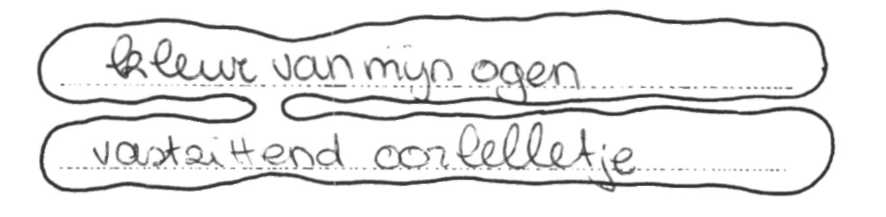 kleur van mijn ogen
vastzittend oorlelletje